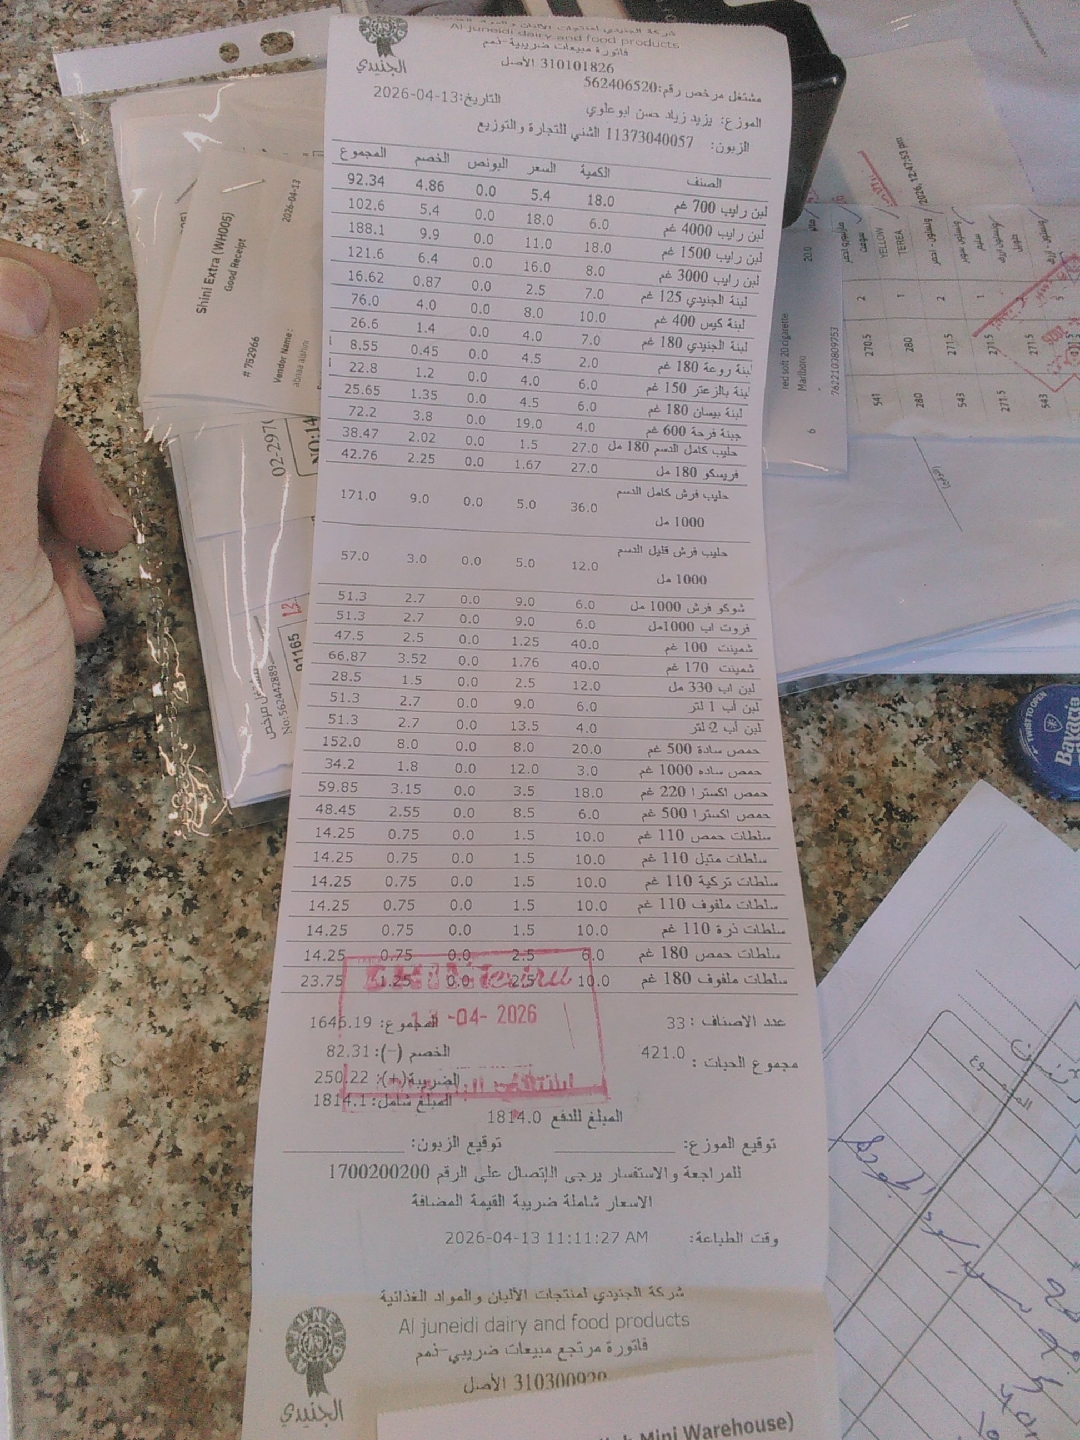 شركة الجنيدي لمنتجات الألبان والمواد الغذائية
Al juneidi dairy and food products
فاتورة مبيعات ضريبية-ذمم
310101826 الأصل
الجنيدي
مشتغل مرخص رقم:562406520
التاريخ:2026-04-13
الموزع: يزيد زياد حسن ابوعلوي
الزبون: 11373040057 الشني للتجارة والتوزيع
الصنف الكمية السعر البونص الخصم المجموع
لبن رايب 700 غم 18.0 5.4 0.0 4.86 92.34
لبن رايب 4000 غم 6.0 18.0 0.0 5.4 102.6
لبن رايب 1500 غم 18.0 11.0 0.0 9.9 188.1
لبن رايب 3000 غم 8.0 16.0 0.0 6.4 121.6
لبنة الجنيدي 125 غم 7.0 2.5 0.0 0.87 16.62
لبنة كيس 400 غم 10.0 8.0 0.0 4.0 76.0
لبنة الجنيدي 180 غم 7.0 4.0 0.0 1.4 26.6
لبنة روعة 180 غم 2.0 4.5 0.0 0.45 8.55
لبنة بالزعتر 150 غم 6.0 4.0 0.0 1.2 22.8
لبنة بيسان 180 غم 6.0 4.5 0.0 1.35 25.65
جبنة فرحة 600 غم 4.0 19.0 0.0 3.8 72.2
حليب كامل الدسم 180 مل 27.0 1.5 0.0 2.02 38.47
فريسكو 180 مل 27.0 1.67 0.0 2.25 42.76
حليب فرش كامل الدسم 1000 مل 36.0 5.0 0.0 9.0 171.0
حليب فرش قليل الدسم 1000 مل 12.0 5.0 0.0 3.0 57.0
شوكو فرش 1000 مل 6.0 9.0 0.0 2.7 51.3
فروت اب 1000مل 6.0 9.0 0.0 2.7 51.3
شمينت 100 غم 40.0 1.25 0.0 2.5 47.5
شمينت 170 غم 40.0 1.76 0.0 3.52 66.87
لبن اب 330 مل 12.0 2.5 0.0 1.5 28.5
لبن أب 1 لتر 6.0 9.0 0.0 2.7 51.3
لبن أب 2 لتر 4.0 13.5 0.0 2.7 51.3
حمص سادة 500 غم 20.0 8.0 0.0 8.0 152.0
حمص ساده 1000 غم 3.0 12.0 0.0 1.8 34.2
حمص اكسترا 220 غم 18.0 3.5 0.0 3.15 59.85
حمص اكسترا 500 غم 6.0 8.5 0.0 2.55 48.45
سلطات حمص 110 غم 10.0 1.5 0.0 0.75 14.25
سلطات متبل 110 غم 10.0 1.5 0.0 0.75 14.25
سلطات تركية 110 غم 10.0 1.5 0.0 0.75 14.25
سلطات ملفوف 110 غم 10.0 1.5 0.0 0.75 14.25
سلطات ذرة 110 غم 10.0 1.5 0.0 0.75 14.25
سلطات حمص 180 غم 6.0 2.5 0.0 0.75 14.25
سلطات ملفوف 180 غم 10.0 2.5 0.0 1.25 23.75
-04- 2026
عدد الاصناف : 33 المجموع: 1646.19
مجموع الحبات : 421.0 الخصم (-): 82.31
الضريبة(+): 250.22
المبلغ شامل: 1814.1
المبلغ للدفع 1814.0
توقيع الموزع: توقيع الزبون:
للمراجعة والاستفسار يرجى الإتصال على الرقم 1700200200
الاسعار شاملة ضريبة القيمة المضافة
وقت الطباعة: 2026-04-13 11:11:27 AM
شركة الجنيدي لمنتجات الألبان والمواد الغذائية
Al juneidi dairy and food products
فاتورة مرتجع مبيعات ضريبي-ذمم
الأصل
الجنيدي
Mini Warehouse)
Shini Extra (WH005)
Good Receipt
2026-04-13
# 752966
Vendor Name :
02-297
91165
No: 562442889
2026, 12:47:53 pm
YELLOW
TEREA
2 270.5 541
1 280 280
2 271.5 543
1 271.5 271.5
543
red soft 20 cigarette
Marlboro
7622100809753
20.0
6
TWIST TO OPEN
Bavaria